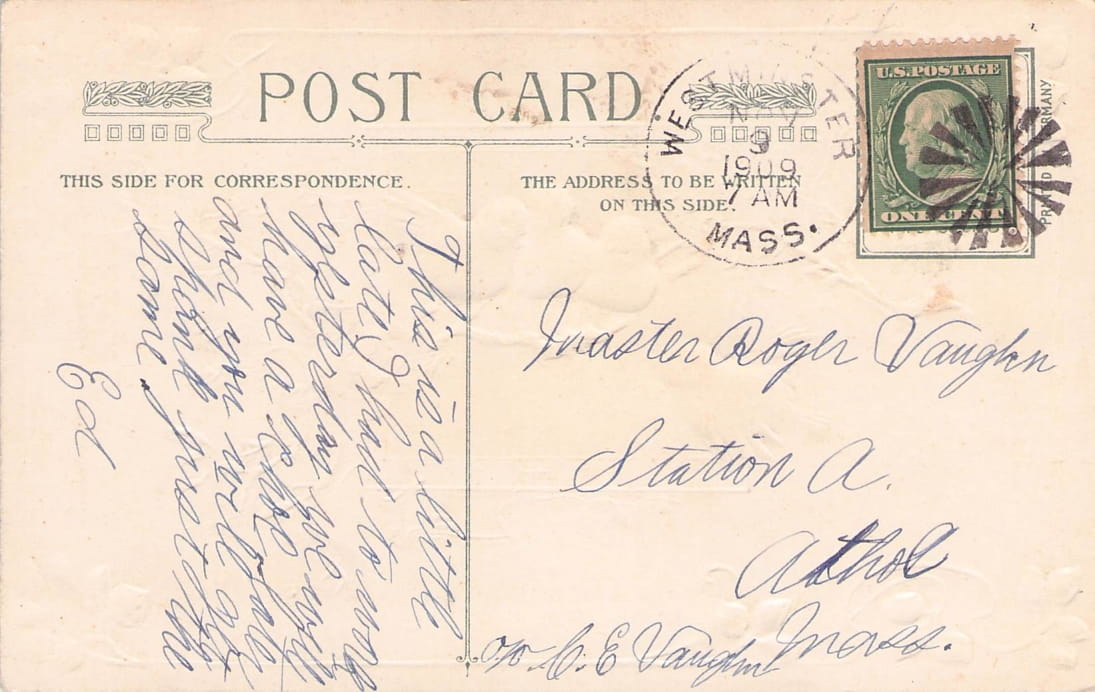 POST CARD
THIS SIDE FOR CORRESPONDENCE.
THE ADDRESS TO BE WRITTEN
ON THIS SIDE.
WESTMINSTER
NOV
9
1909
7 AM
MASS.
U.S. POSTAGE
ONE CENT
PRINTED GERMANY
This is a little
late I had to
yesterday will
have a
and you will get
just the
same.
Ed
Master Roger Vaughn
Station A.
Athol
Mass.
c/o C. E Vaughn